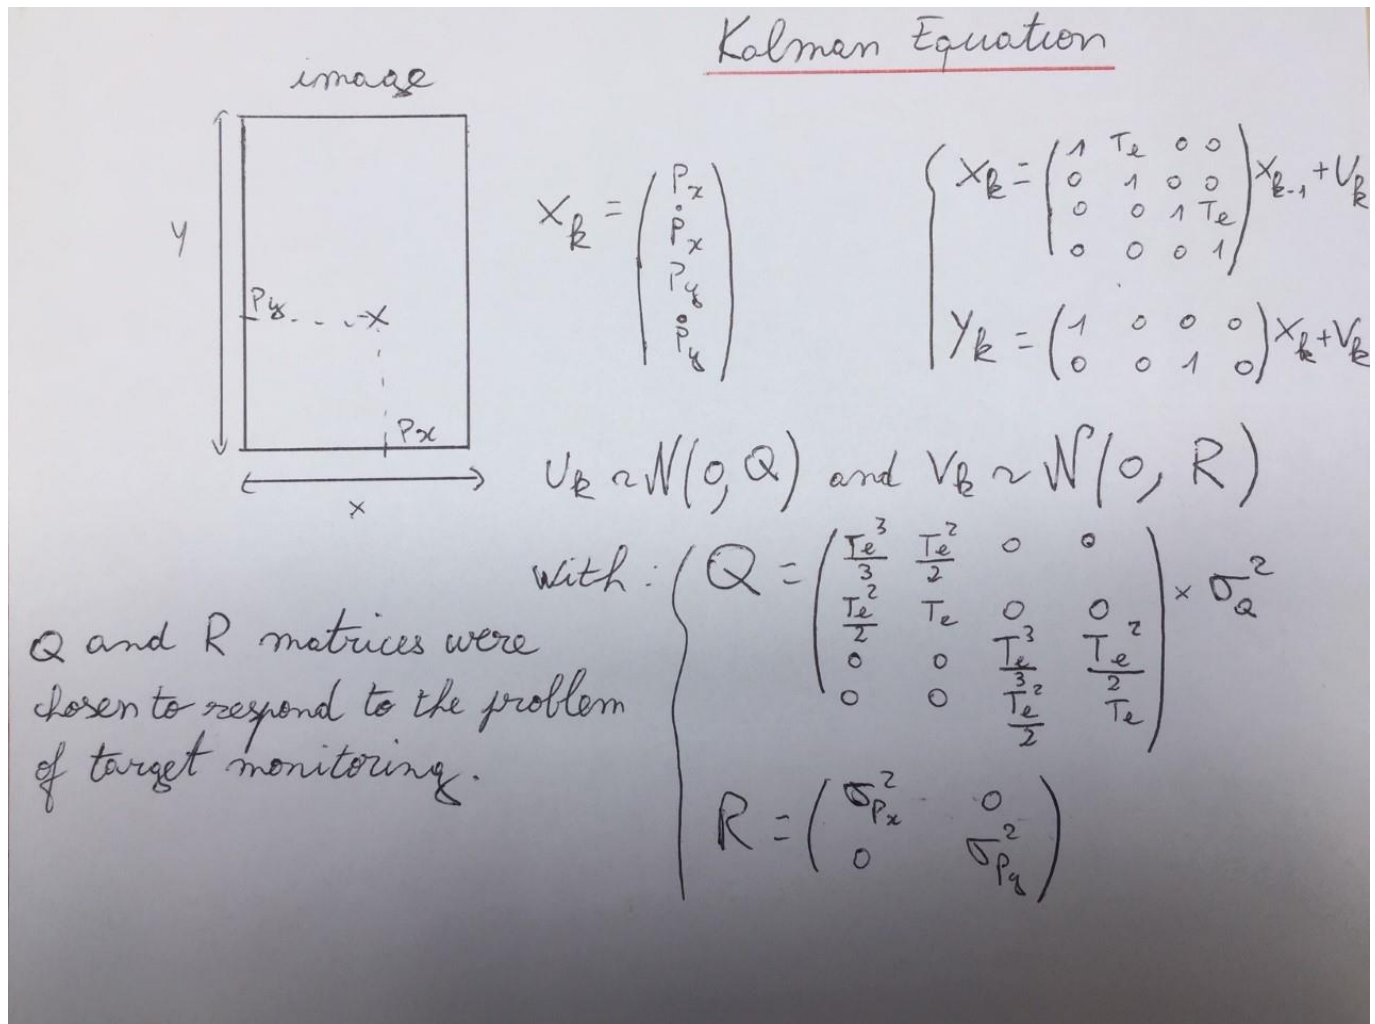 Kalman Equation
image
y
Py
Px
x
X_k = (P_x Ṗ_x P_y Ṗ_y)
{ X_k = (1 T_e 0 0
0 1 0 0
0 0 1 T_e
0 0 0 1) X_{k-1} + U_k
Y_k = (1 0 0 0
0 0 1 0) X_k + V_k
U_k ~ N(0, Q) and V_k ~ N(0, R)
with : { Q = (T_e^3/3 T_e^2/2 0 0
T_e^2/2 T_e 0 0
0 0 T_e^3/3 T_e^2/2
0 0 T_e^2/2 T_e) × σ_Q^2
R = (σ_{P_x}^2 0
0 σ_{P_y}^2)
Q and R matrices were
chosen to respond to the problem
of target monitoring.